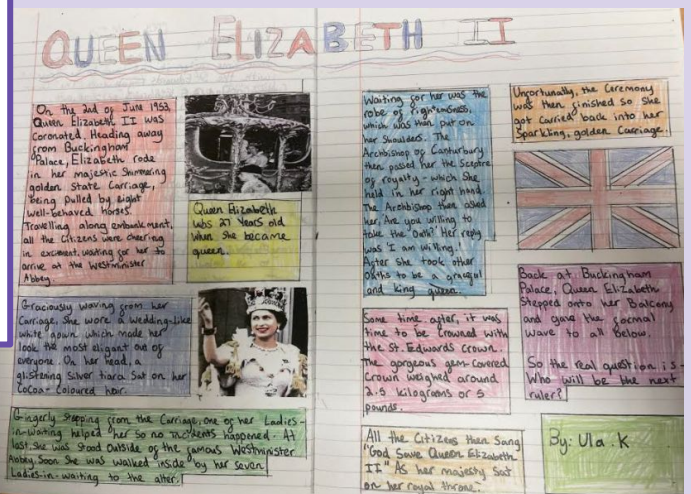 QUEEN ELIZABETH II
On the 2nd of June 1953,
Queen Elizabeth II was
Coronated. Heading away
from Buckingham
Palace, Elizabeth rode
in her majestic Shimmering
golden State Carriage,
being Pulled by eight
well-behaved horses.
Travelling along embankment,
all the Citizens were Cheering
in excitment, waiting for her to
arrive at the Westminister
Abbey.
Queen Elizabeth
was 27 Years old
When She became
queen.
Graciously waving from her
Carriage, She wore a wedding-like
white gown which made her
look the most eligant out of
everyone. On her head, a
glistening Silver tiara Sat on her
Cocoa-Coloured hair.
Gingerly Stepping from the Carriage, one of her Ladies-
in-waiting helped her so no incidents happened. At
last, she was Stood outside of the famous Westminister
Abbey. Soon She was walked inside by her Seven
Ladies-in-waiting to the alter.
Waiting for her was the
robe of righteousness,
which was then put on
her Shoulders. The
Archbishop of Canturbury
then passed her the Sceptre
of royalty - which She
held in her right hand.
The Archbishop then asked
her, 'Are you willing to
take the Oath?' Her reply
was 'I am willing.'
After She took other
Oaths to be a
and King queen.
Some time after, it was
time to be Crowned with
the St. Edwards crown.
The gorgeous gem-covered
Crown weighed around
2.5 kilograms or 5
pounds.
All the Citizens then Sang
"God Save Queen Elizabeth
II" As her majesty Sat
on her royal throne.
Unfortunally, the Ceremony
was then finished so She
got Carried back into her
Sparkling, golden Carriage.
Back at Buckingham
Palace, Queen Elizabeth
Stepped onto her Balcony
and gave the formal
wave to all below.
So the real question is -
Who will be the next
ruler?
By: Ula .K